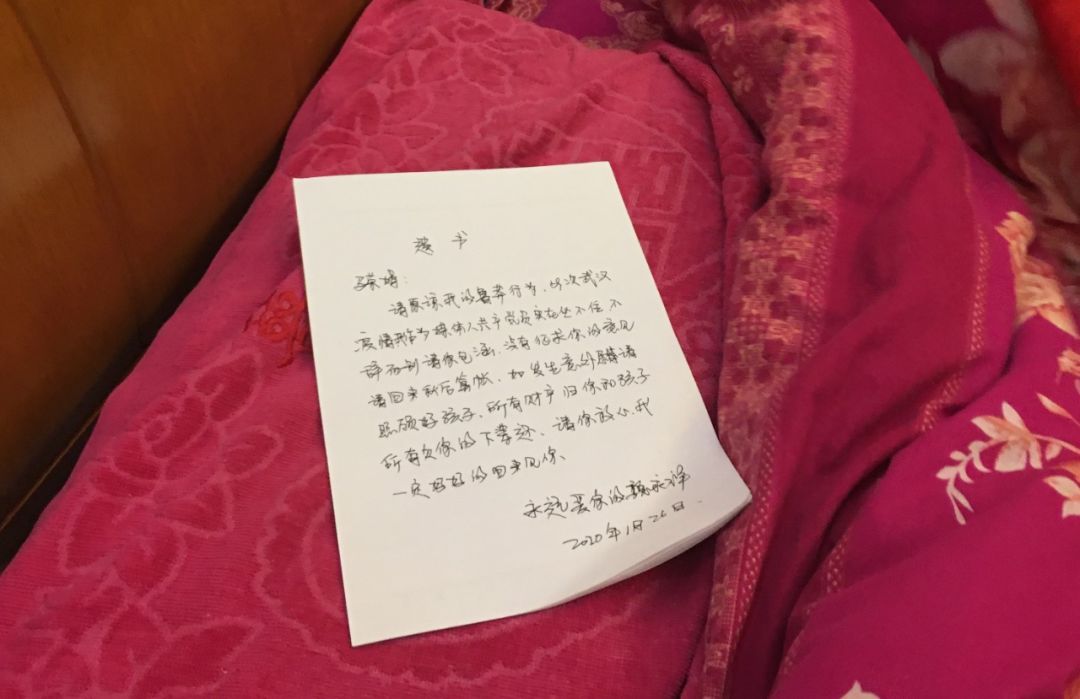 遗书
婧:
请原谅我的鲁莽行为,此次武汉
疫情我作为媒体人共产党员实在坐不住不
辞而别请你包涵,没有征求你的意见
请回来秋后算帐,如发生意外麻烦请
照顾好孩子,所有财产归你和孩子
所有欠你的下辈还,请你放心,我
一定好好的回来见你、
永远爱你的永祥
2020年1月26日